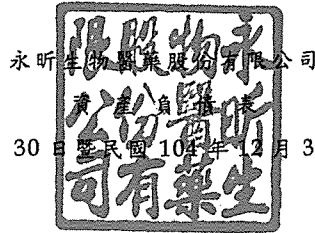 永昕生物醫藥股份有限公司
資產負債表
30 日暨民國 104 年 12 月 3
永昕生
物醫藥
股份有
限公司